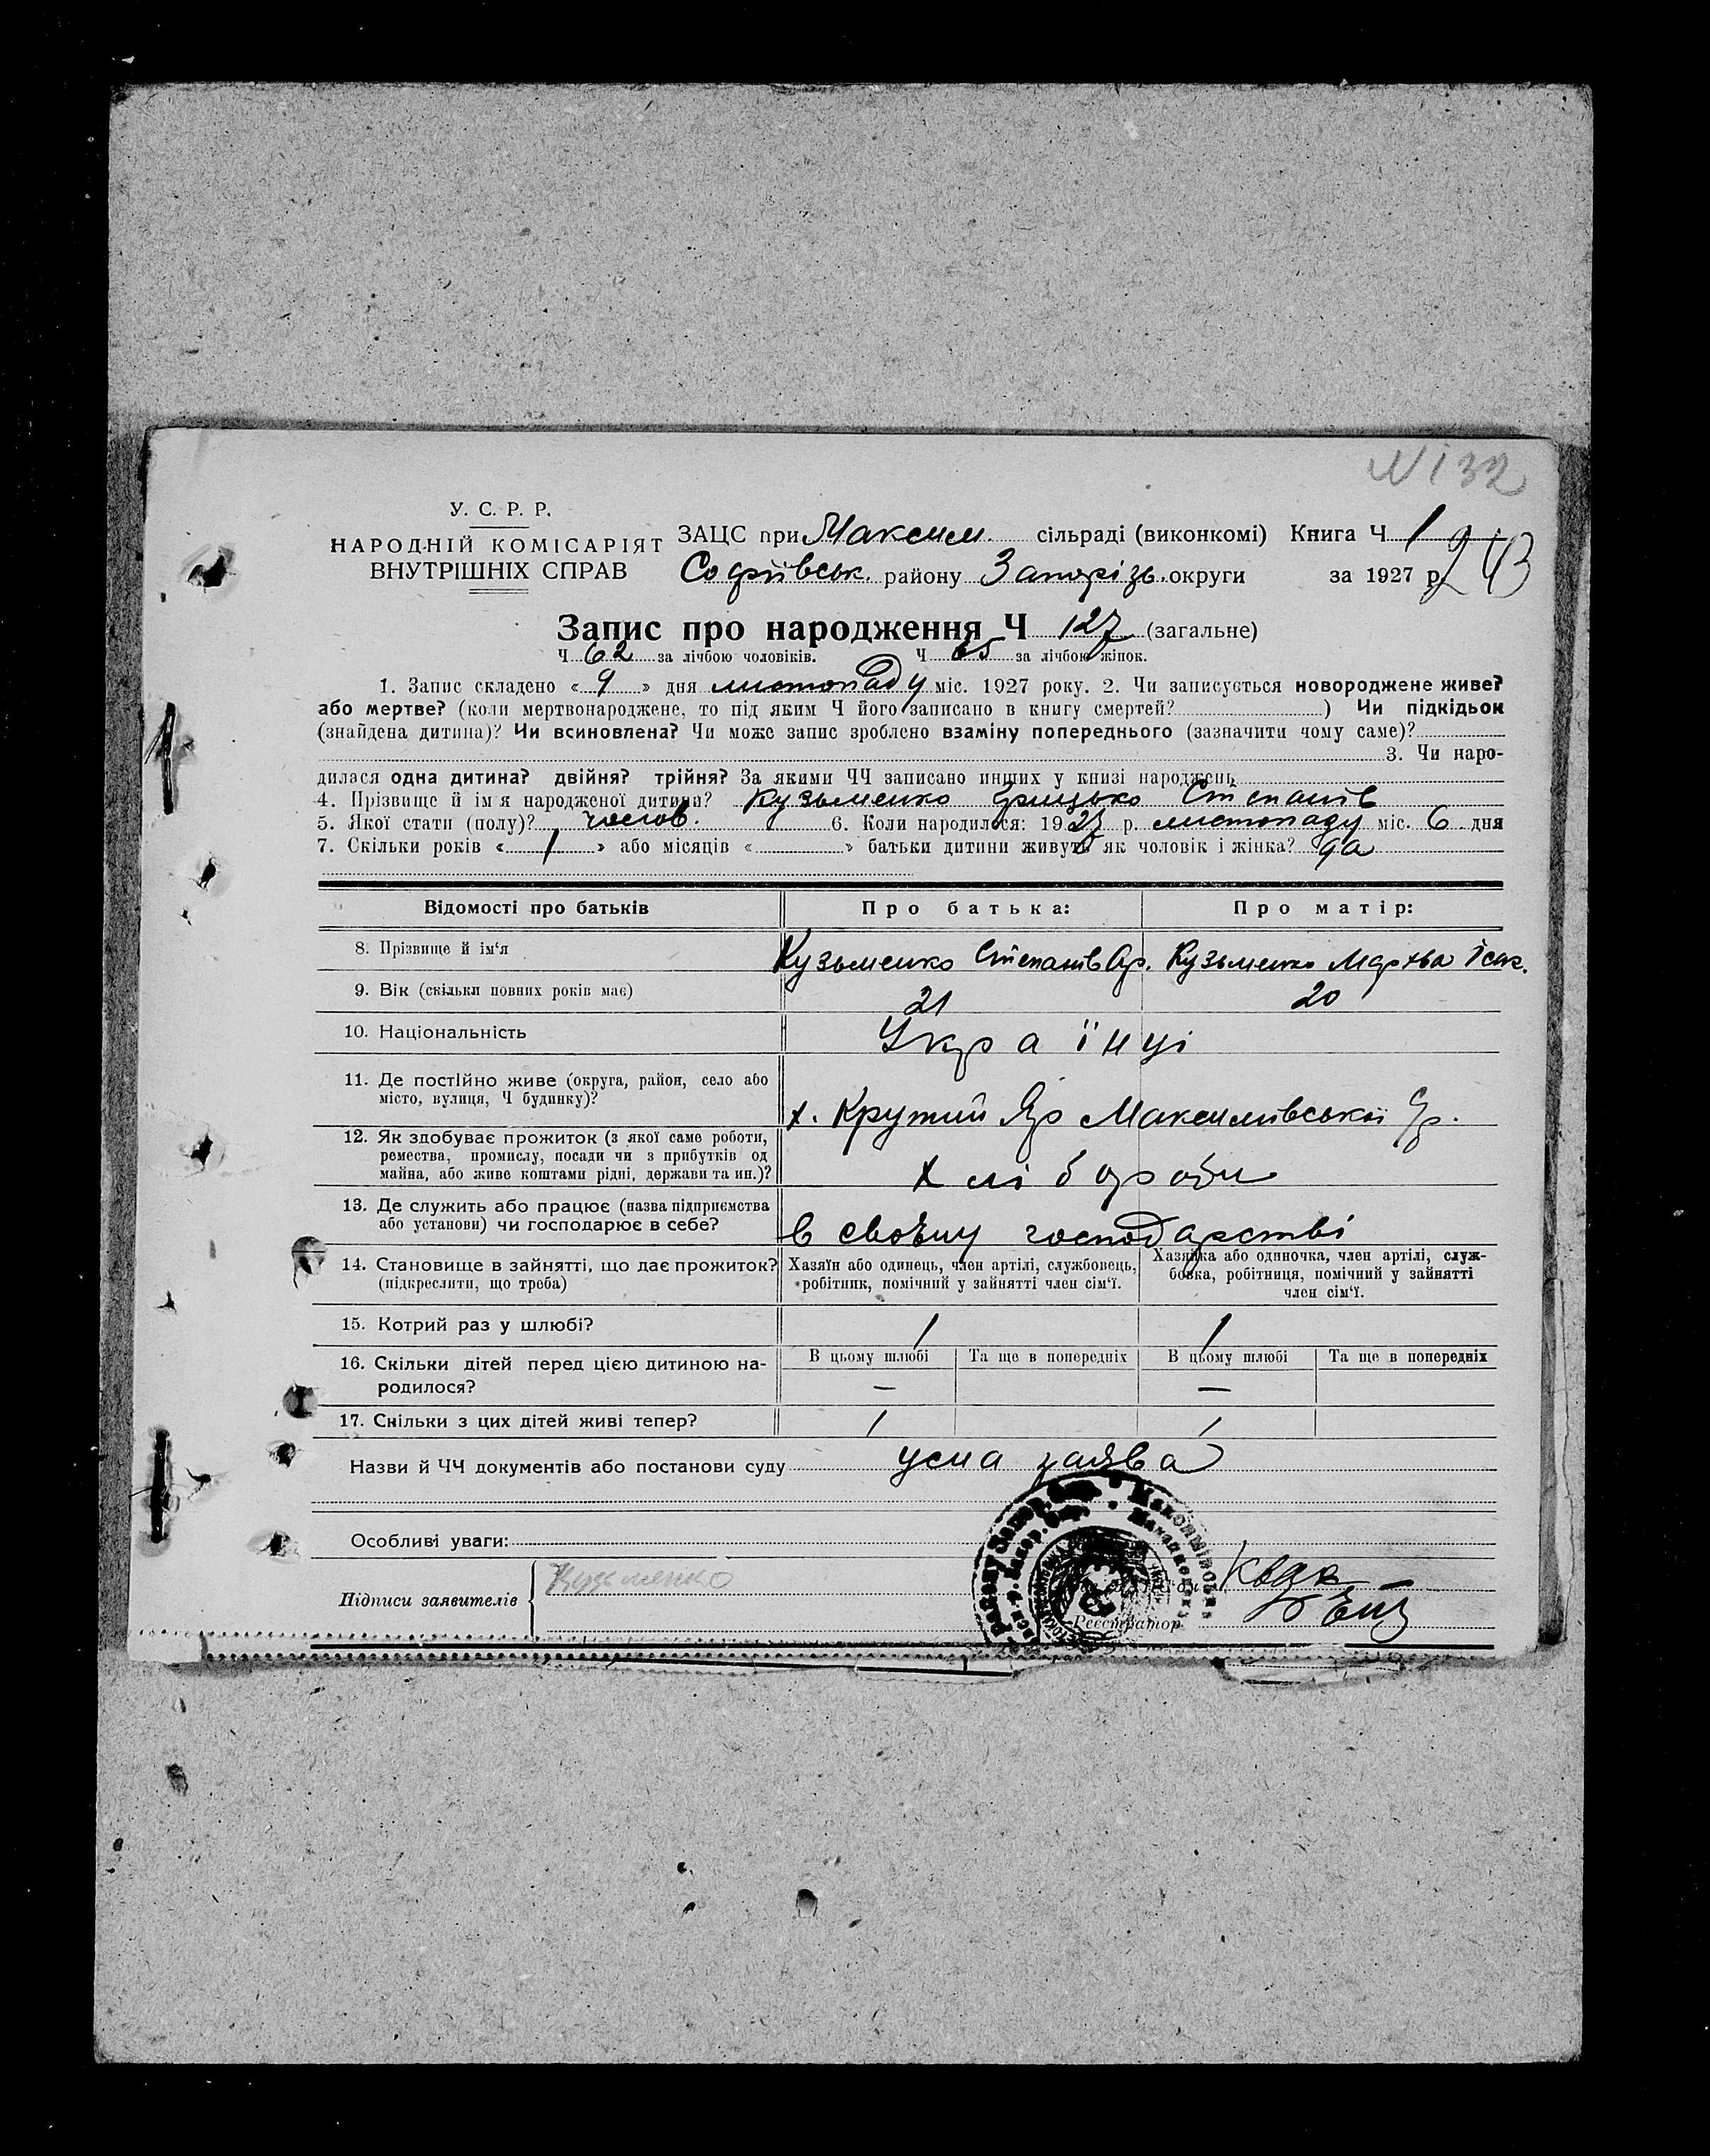 N 132
У. С. Р. Р.
НАРОДНІЙ КОМІСАРІЯТ
ВНУТРІШНІХ СПРАВ
ЗАЦС при Максим. сільраді (виконкомі) Книга Ч 1
Софіївськ. району Запоріз. округи за 1927 р. 243
Запис про народження Ч 127 (загальне)
Ч 62 за лічбою чоловіків. Ч 65 за лічбою жінок.
1. Запис складено « 9 » дня листопаду міс. 1927 року. 2. Чи записується новороджене живе?
або мертве? (коли мертвонароджене, то під яким Ч його записано в книгу смертей? ) Чи підкідьок
(знайдена дитина)? Чи всиновлена? Чи може запис зроблено взаміну попереднього (зазначити чому саме)?
3. Чи наро-
дилася одна дитина? двійня? трійня? За якими ЧЧ записано инших у книзі народжень
4. Прізвище й ім я народженої дитини? Кузьменко Грицько Степанів
5. Якої стати (полу)? чолов. 6. Коли народилося: 1927 р. листопаду міс. 6 дня
7. Скільки років « 1 » або місяців « » батьки дитини живуть як чоловік і жінка? да
Відомості про батьків Про батька: Про матір:
8. Прізвище й ім‘я Кузьменко Степанів Ар. Кузьменко Мархва Ісак.
9. Вік (скільки повних років має) 21 20
10. Національність Українці
11. Де постійно живе (округа, район, село або
місто, вулиця, Ч будинку)? х. Крутий Яр Максимівської
12. Як здобуває прожиток (з якої саме роботи,
ремества, промислу, посади чи з прибутків од
майна, або живе коштами рідні, держави та ин.)? Хлібороби
13. Де служить або працює (назва підприємства
або установи) чи господарює в себе? в своєму господарстві
14. Становище в зайнятті, що дає прожиток?
(підкреслити, що треба)
Хазяїн або одинець, член артілі, службовець,
робітник, помічний у зайнятті член сім‘ї.
Хазяйка або одиночка, член артілі, служ-
бовка, робітниця, помічний у зайнятті
член сім‘ї.
15. Котрий раз у шлюбі? 1 1
16. Скільки дітей перед цією дитиною на-
родилося?
В цьому шлюбі Та ще в попередніх В цьому шлюбі Та ще в попередніх
— —
17. Скільки з цих дітей живі тепер? 1 1
Назви й ЧЧ документів або постанови суду усна заява
Особливі уваги:
Підписи заявителів Кузьменко
Реєстратор